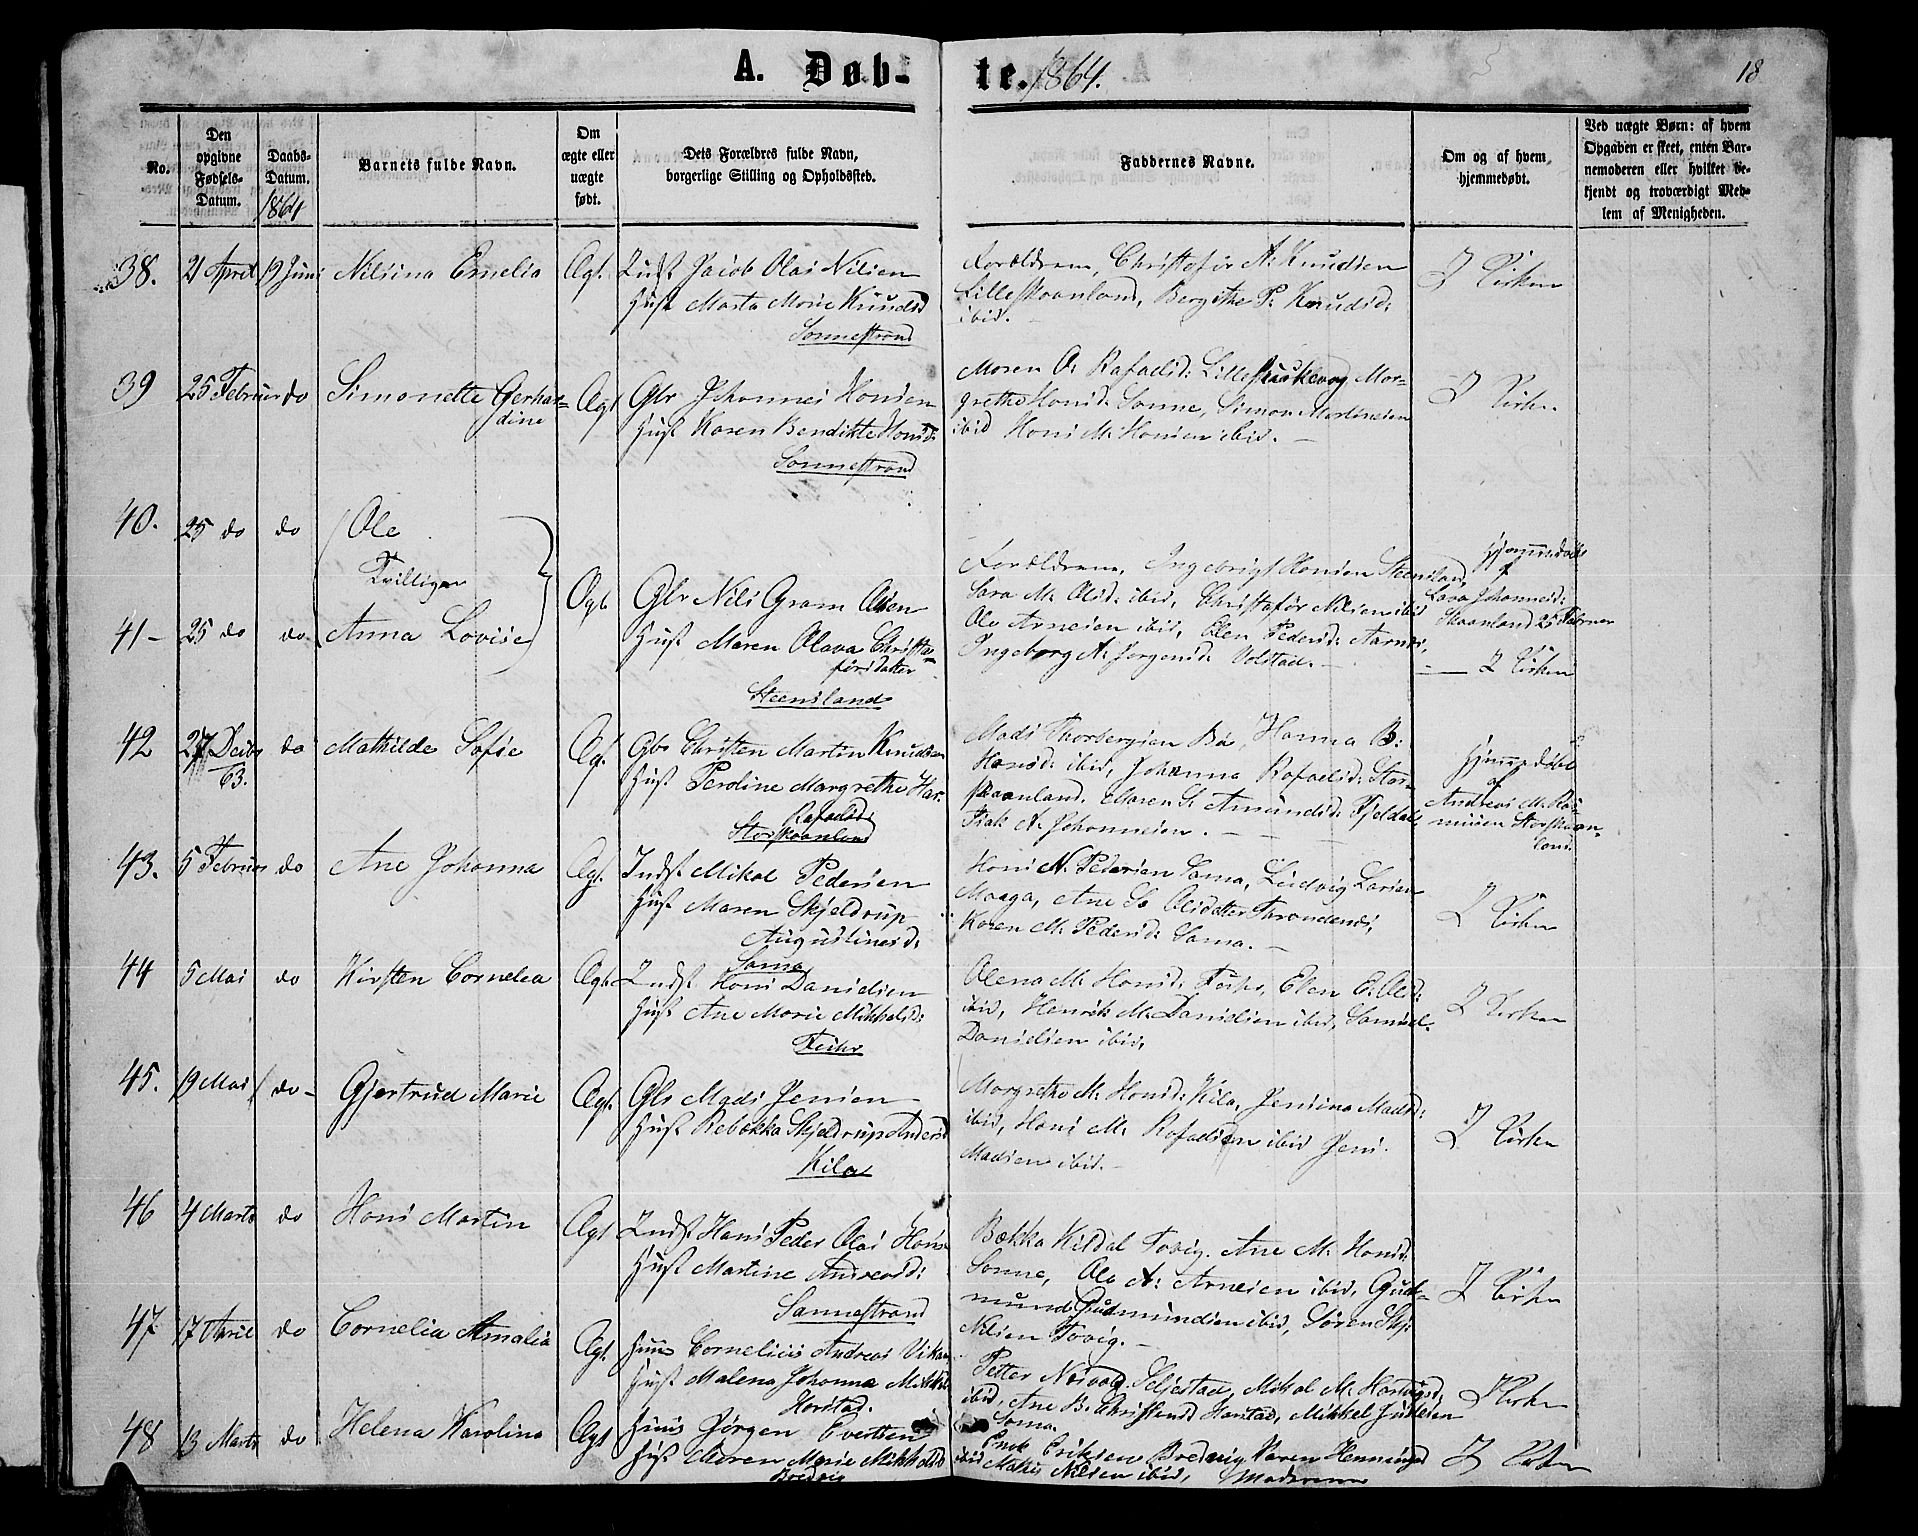 A. Døb-
te. 1864.
18
No.
Den opgivne Fødsels-Datum.
Daabs-Datum. 1864
Barnets fulde Navn.
Om ægte eller uægte født.
Dets Forældres fulde Navn, borgerlige Stilling og Opholdssted.
Faddernes Navne.
Om og af hvem hjemmedøbt.
Ved uægte Børn: af hvem Opgaven er skeet, enten Barnemoderen eller hvilket bekjendt og troværdigt Medlem af Menigheden.
38. 21 April 19 Juni Nilsina Emelia Ægt. Indst Jacob Olai Nilsen
Hust Marta Marie Knudsd
Sannestrand
Forældrene, Christofer A. Knudsen
Lilleskaanland, Bergithe P. Knudsd:
ibid.
I Kirken
39 25 Februar do Simonette Gerhar-
dine
Ægt Gbr Johannes Hansen
Hust Karen Bendikte Hansd:
Sannestrand
Moren O. Rafaelsd: Mar-
grethe Hansd. Sanne, Simon Martinsen
ibid Hans M. Hansen ibid.
I Kirken
40. 25 do do Ole
Tvillinger
41- 25 do do Anna Lovise
Ægt Gbr Nils Gram Olsen
Hust Maren Olava Christo-
fersdatter
Steensland
Forældrene, Ingebrigt Hansen Steensland,
Sara M. Olsd. ibid, Christofer Nilsen ibid
Ole Arnesen ibid, Elen Pedersd: Aarnes,
Ingeborg A. Jørgensd. Volstad.
Hjemmedøbt
af
Johannesd:
Skaanland 25 Februar
I Kirken
42 27 Decbr
63.
do Mathilde Sofie Æg. Gbr Christen Martin Knudsen
Hust Peroline Margrethe
Rafaelsd:
Storskaanland
Mads Thorbergsen Bø, Hanna B:
Hansd. ibid, Johanna Rafaelsd: Stor-
skaanland. Maren S. Amundsd: Fjeldal,
Isak N. Johannesen.
Hjemmedøbt
af
Andreas M. Ras-
musen Storskaan-
land.
43. 5 Februar do Ane Johanna Ægt. Indst Mikal Pedersen
Hust Maren Skjeldrup
Augustinusd:
Sama
Hans N. Pedersen Sama, Ludvig Larsen
Maaga, Ane S. Olsdatter Throndenes,
Karen M. Pedersd: Sama.
I Kirken
44 5 Mai do Kirsten Cornelea Ægt Indst Hans Danielsen
Hust Ane Marie Mikkelsd:
Olena M. Hansd. Elen E. Olsd:
ibid, Henrik M. Danielsen ibid, Samuel
Danielsen ibid.
I Kirken
45. 19 Mai do- Gjertrud Marie Ægt. Gbr Mads Jensen
Hust Rebekka Skjeldrup Andersd
Kila
Margrethe M. Hansd: Kila, Jensina Madsd:
ibid, Hans M. Rafaelsen ibid Jens
Madsen ibid.
I Kirken
46 4 Marts do Hans Martin Ægt Indst Hans Peder Olai Hans-
Hust Martine Andreasd:
Sannestrand
Bækka Kildal Tovig. Ane M. Hansd.
Sanne, Ole A: Arnesen ibid, Gud-
mund Gudmundsen ibid, Søren Skj:
Nilsen Tovig.
I Kirken
47 17 April do Cornelia Amalia Ægt. Huus Cornelius Andreas Vikan
Hust Malena Johanna Mikkel
Harstad.
Petter Norvald Seljestad, Mikal M. Hartvigs,
ibid, Ane B. Christensd Harstad, Mikkel
Sama.
I Kirken
48 13 Marts do Helena Karolina Ægt Huus Jørgen Evertsen
Hust Maren Marie Mikkelsd
Bredvig
Erik Eriksen Bredvig Karen Henningsd
ibid Nilsen ibid, Moderen
I Kirken